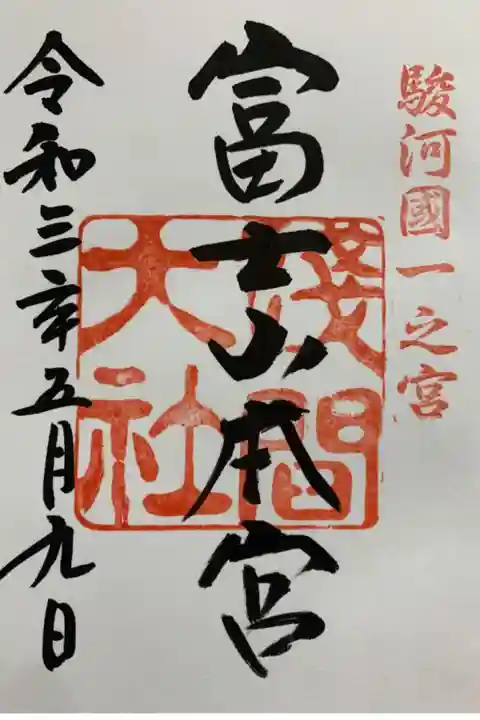 駿河國一之宮
富士山本宮
淺間
大社
令和三年五月九日